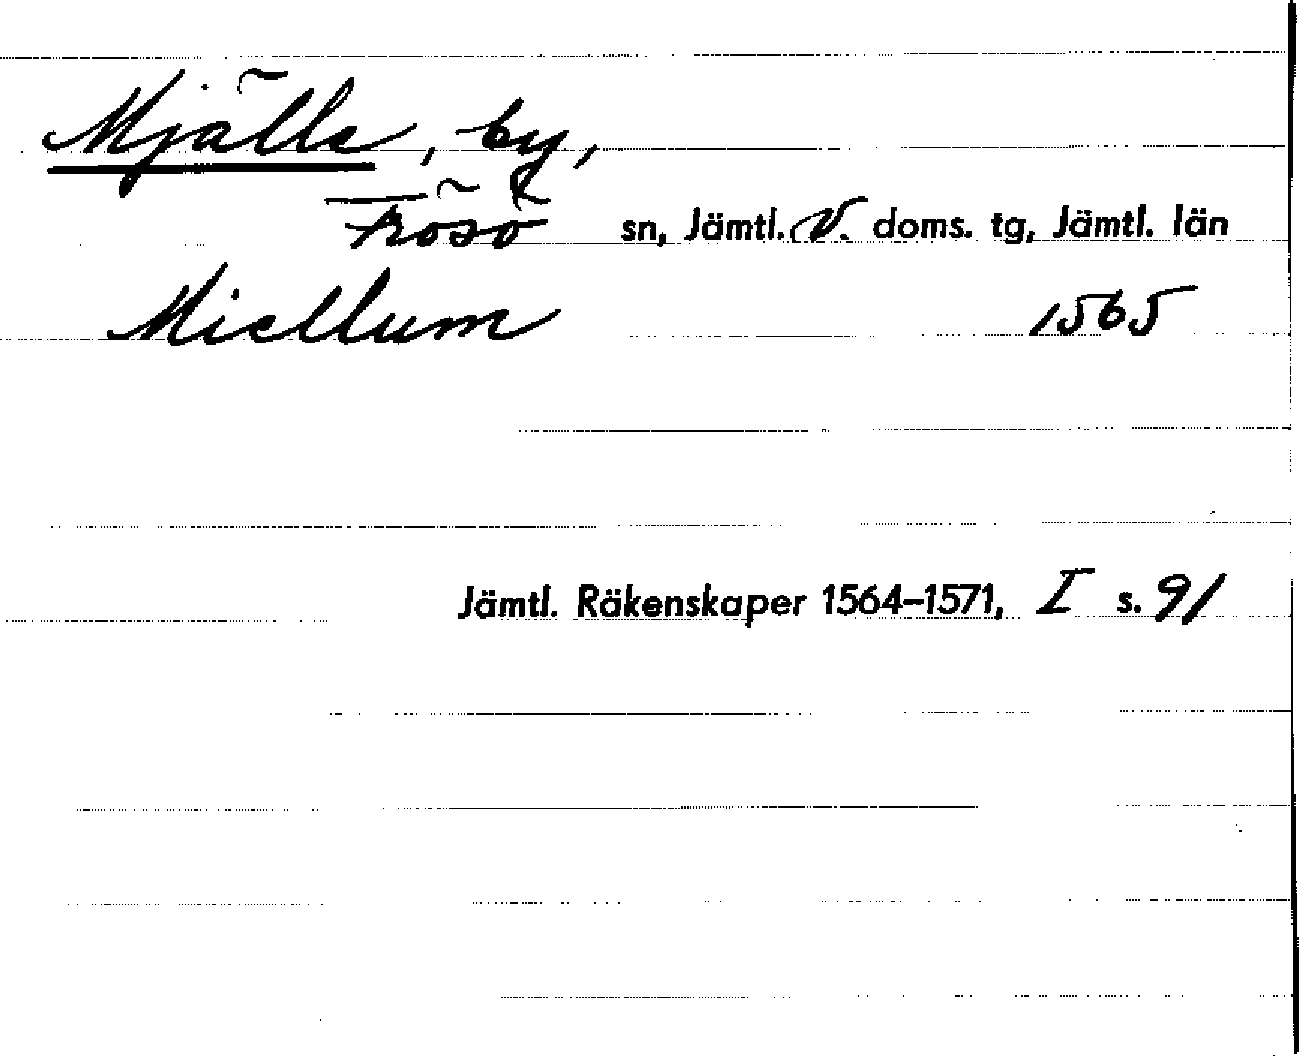 Mjälle, by,
Frösö sn, Jämtl. V. doms. tg, Jämtl. län
Miellum 1565
Jämtl. Räkenskaper 1564–1571, I s. 91